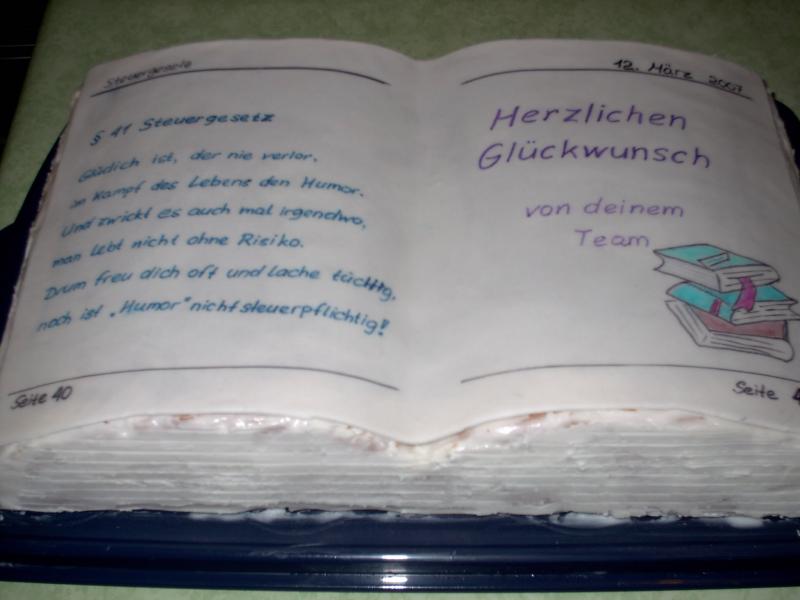 § 41 Steuergesetz
Glücklich ist, der nie verlor,
im Kampf des Lebens den Humor.
Und zwickt es auch mal irgendwo,
man lebt nicht ohne Risiko.
Drum freu dich oft und lache tüchtig,
noch ist „Humor" nicht steuerpflichtig!
Seite 40
12. März 2007
Herzlichen
Glückwunsch
von deinem
Team
Seite